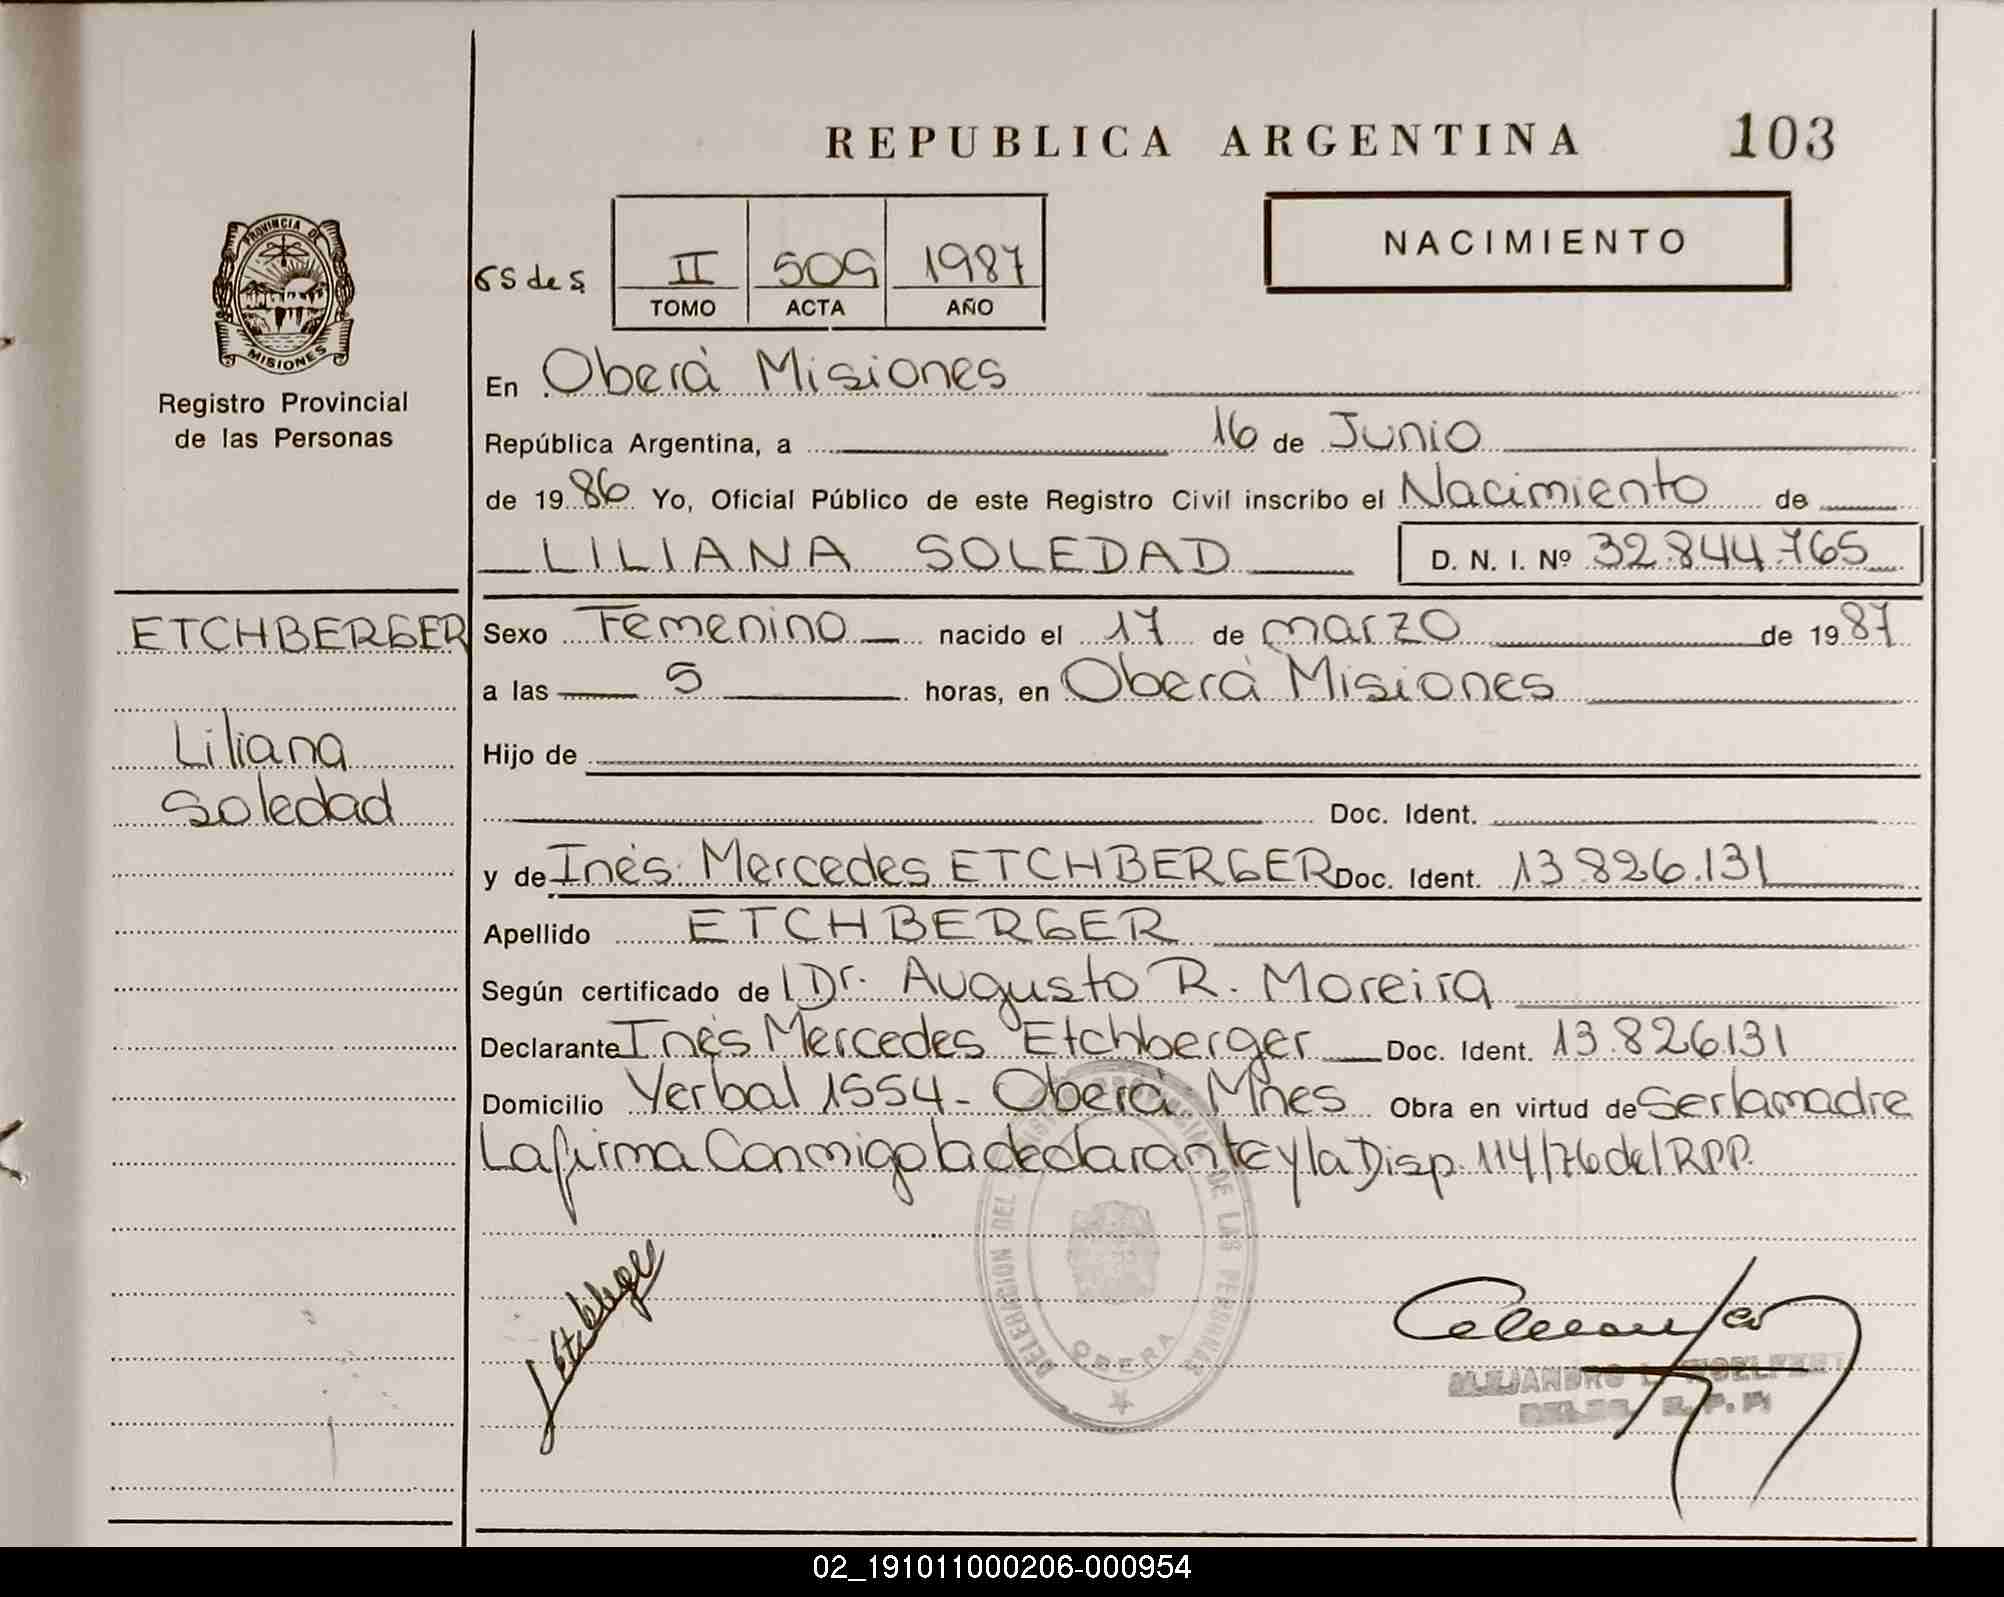 REPUBLICA ARGENTINA 103
PROVINCIA DE
MISIONES
Registro Provincial
de las Personas
NACIMIENTO
II 509 1987
TOMO ACTA AÑO
En Oberá Misiones
República Argentina, a 16 de Junio
de 1986 Yo, Oficial Público de este Registro Civil inscribo el Nacimiento de
LILIANA SOLEDAD D. N. I. Nº 32.844.765
ETCHBERGER
Liliana
Soledad
Sexo Femenino nacido el 17 de marzo de 1987
a las 5 horas, en Oberá Misiones
Hijo de
Doc. Ident.
y de Inés Mercedes ETCHBERGER Doc. Ident. 13.826.131
Apellido ETCHBERGER
Según certificado de Dr. Augusto R. Moreira
Declarante Inés Mercedes Etchberger Doc. Ident. 13.826.131
Domicilio Yerbal 1554 - Oberá Mnes Obra en virtud de Ser la madre
La firma Conmigo la declarante y la Disp. 114/76 del R.P.P.
DELEGACION DEL DE LAS PERSONAS
OBERA
ALEJANDRO L.
02_191011000206-000954